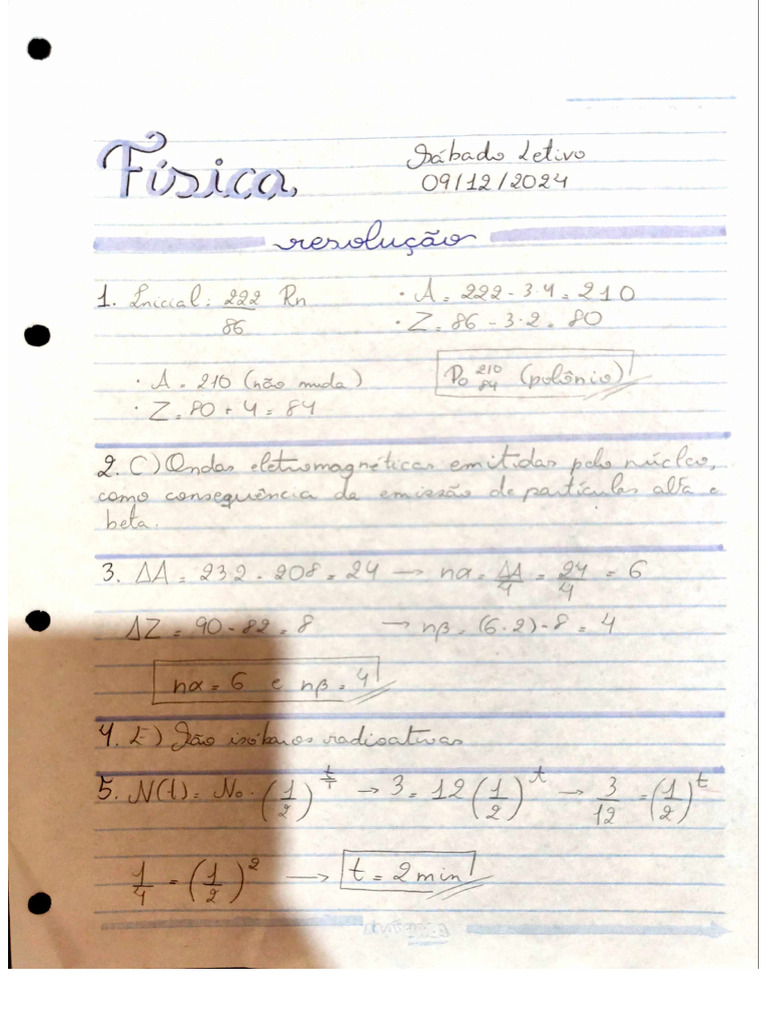 Física
Sábado Letivo
09/12/2024
resolução
1. Inicial: 222/86 Rn
• A = 222 - 3·4 = 210
• Z = 86 - 3·2 = 80
• A = 210 (não muda)
• Z = 80 + 4 = 84
Po 210 84 (polônio)
2. C) Ondas eletromagnéticas emitidas pelo núcleo,
como consequência da emissão de partículas alfa e
beta.
3. ΔA = 232 - 208 = 24 → nα = ΔA/4 = 24/4 = 6
ΔZ = 90 - 82 = 8 → nβ = (6·2) - 8 = 4
nα = 6 e nβ = 4
4. E) São isóbaros radioativas
5. N(t) = No · (1/2)^t/T → 3 = 12 (1/2)^t → 3/12 = (1/2)^t
1/4 = (1/2)^2 → t = 2 min